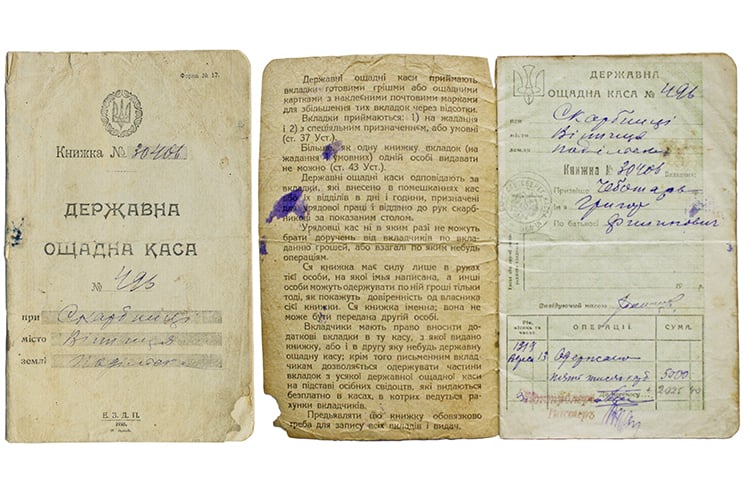 Форма № 17.
Книжка № 30406
ДЕРЖАВНА
ОЩАДНА КАСА
№ 496
при Скарбниці
місто Вінниця
землі
Е. З. Д. П.
1918.
Державні ощадні каси приймають
вкладки готовими грішми або ощадними
картками з наклеєними почтовими марками
для збільшення тих вкладок через відсотки.
Вкладки приймаються: 1) на жадання
і 2) з спеціяльним призначенням, або умовні
(ст. 37 Уст.).
Більш як одну книжку вкладок (на
жадання і умовних) одній особі видавати
не можно (ст. 43 Уст.).
Державні ощадні каси одповідають за
вкладки, які внесено в помешканнях кас
або їх відділів в дні і години, призначені
для урядової праці і віддано до рук скарб-
ників за показаним столом.
Урядовці кас ні в яким разі не можуть
брати доручень від вкладчиків по вкла-
данню грошей, або взагалі по яким небудь
операціям.
Ся книжка має силу лише в руках
тієї особи, на якої імья написана, а инші
особи можуть одержувати по ній гроші тільки
тоді, як покажуть довіренність од власника
сієї книжки. Ся книжка іменна; вона не
може бути передана другій особі.
Вкладчики мають право вносити до-
даткові вкладки в ту касу, з якої видано
книжку, або і в другу яку небудь державну
ощадну касу; крім того письменним вклад-
чикам дозволяється одержувати частини
вкладок з усякої державної ощадної каси
на підставі осібних свідоцтв, які видаються
безплатно в касах, в котрих ведуться ра-
хунки вкладчиків.
Предьявляти цю книжку обовязково
треба для запису всіх вкладів і видач.
ДЕРЖАВНА
ОЩАДНА КАСА № 496
при Скарбниці
місті Вінниця
землі
Книжка № 30406 Вкладчика:
Прізвище Чеботарь
Імя Григор
По батькові Филипович
Завідуючий касою
Рік,
місяць та
число.
ОПЕРАЦІЇ
СУМА.
13 Одержано
пять тисяч руб 5000